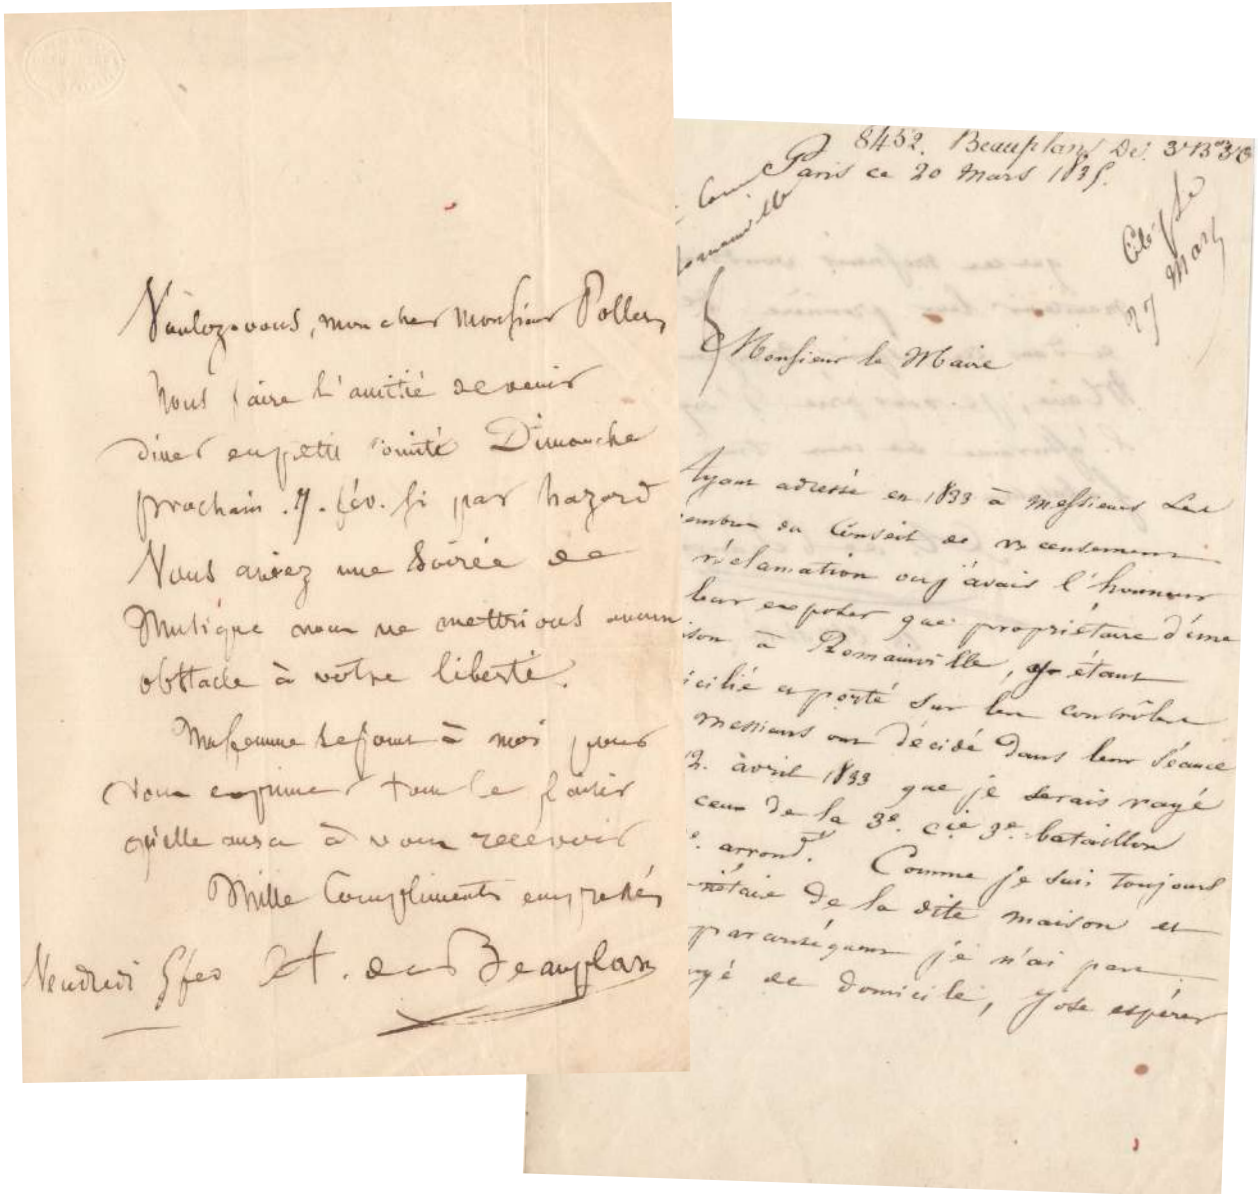 Voulez-vous, mon cher Monsieur
nous faire l'amitié de venir
diner en petit comité Dimanche
prochain .7. fév. Si par hazard
Vous aviez une Soirée de
Musique nous ne mettrions aucun
obstacle à vôtre liberté.
Ma femme se joint à moi pour
vous exprimer tout le plaisir
qu'elle aura à vous recevoir
Mille Compliments empressés
Vendredi 5 fev A. de Beauplan
8452. Beauplan De. 3e Bon
Paris ce 20 Mars 1835.
27 Mars
Monsieur le Maire
Ayant adressé en 1833 à Messieurs Les
embres du Conseil de recensement
réclamation ou j'avais l'honneur
leur exposer que propriétaire d'une
ison à Romainville, y étant
icilié et porté sur les contrôles
messieurs ont décidé dans leur Séance
12. avril 1833 que je serais rayé
ceux de la 3e. Cie 3e. bataillon
e. arrondt. Comme je suis toujours
riétaire de la dite maison et
par conséquent je n'ai pas
ngé de domicile, j'ose espérer